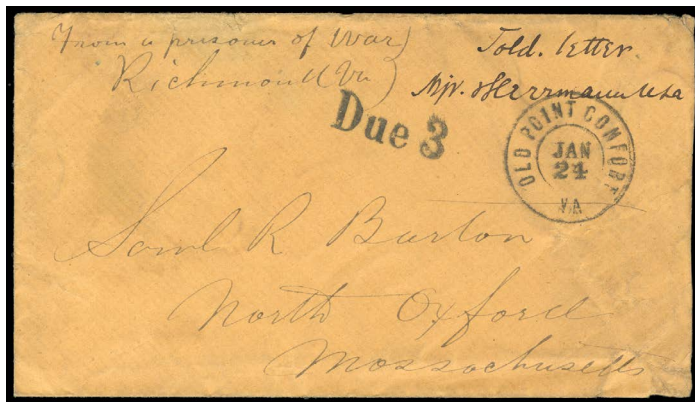 From a prisoner of War)
Richmond (Va)
Sold. letter.
Due 3
OLD POINT COMFORT
JAN
24
VA
Saml R Barton
North Oxford
Massachusetts